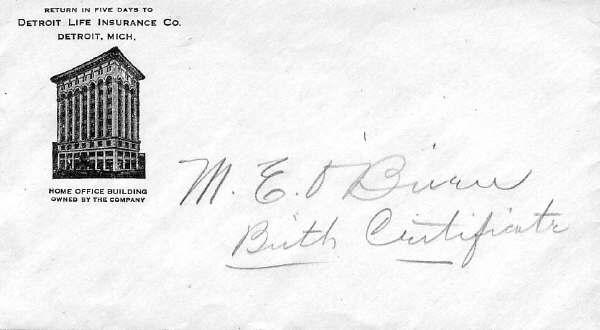 RETURN IN FIVE DAYS TO
DETROIT LIFE INSURANCE CO.
DETROIT, MICH.
HOME OFFICE BUILDING
OWNED BY THE COMPANY
M. E. O'Brien
Birth Certificate